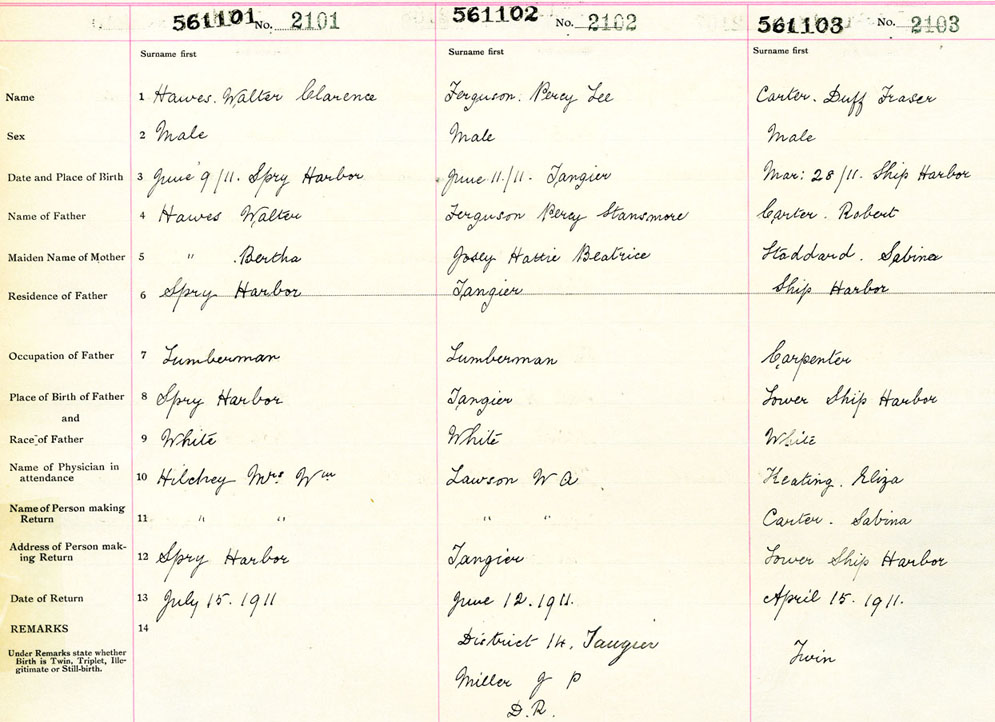 561101 No. 2101 561102 No. 2102 561103 No. 2103
Surname first Surname first Surname first
Name 1 Hawes. Walter Clarence Ferguson. Percy Lee Carter. Duff Fraser
Sex 2 Male Male Male
Date and Place of Birth 3 June 9/11. Spry Harbor June 11/11. Tangier Mar: 28/11. Ship Harbor
Name of Father 4 Hawes Walter Ferguson Percy Stansmore Carter. Robert
Maiden Name of Mother 5 " . Bertha Josey Hattie Beatrice Stoddard. Sabina
Residence of Father 6 Spry Harbor Tangier Ship Harbor
Occupation of Father 7 Lumberman Lumberman Carpenter
Place of Birth of Father 8 Spry Harbor Tangier Lower Ship Harbor
and
Race of Father 9 White White White
Name of Physician in
attendance 10 Hilchey Mrs Wm Lawson W A Keating. Eliza
Name of Person making
Return 11 " " " " Carter. Sabina
Address of Person mak-
ing Return 12 Spry Harbor Tangier Lower Ship Harbor
Date of Return 13 July 15. 1911 June 12. 1911. April 15. 1911.
REMARKS 14
Under Remarks state whether
Birth is Twin, Triplet, Ille-
gitimate or Still-birth.
District 14, Tangier
Miller J P
D.R.
Twin